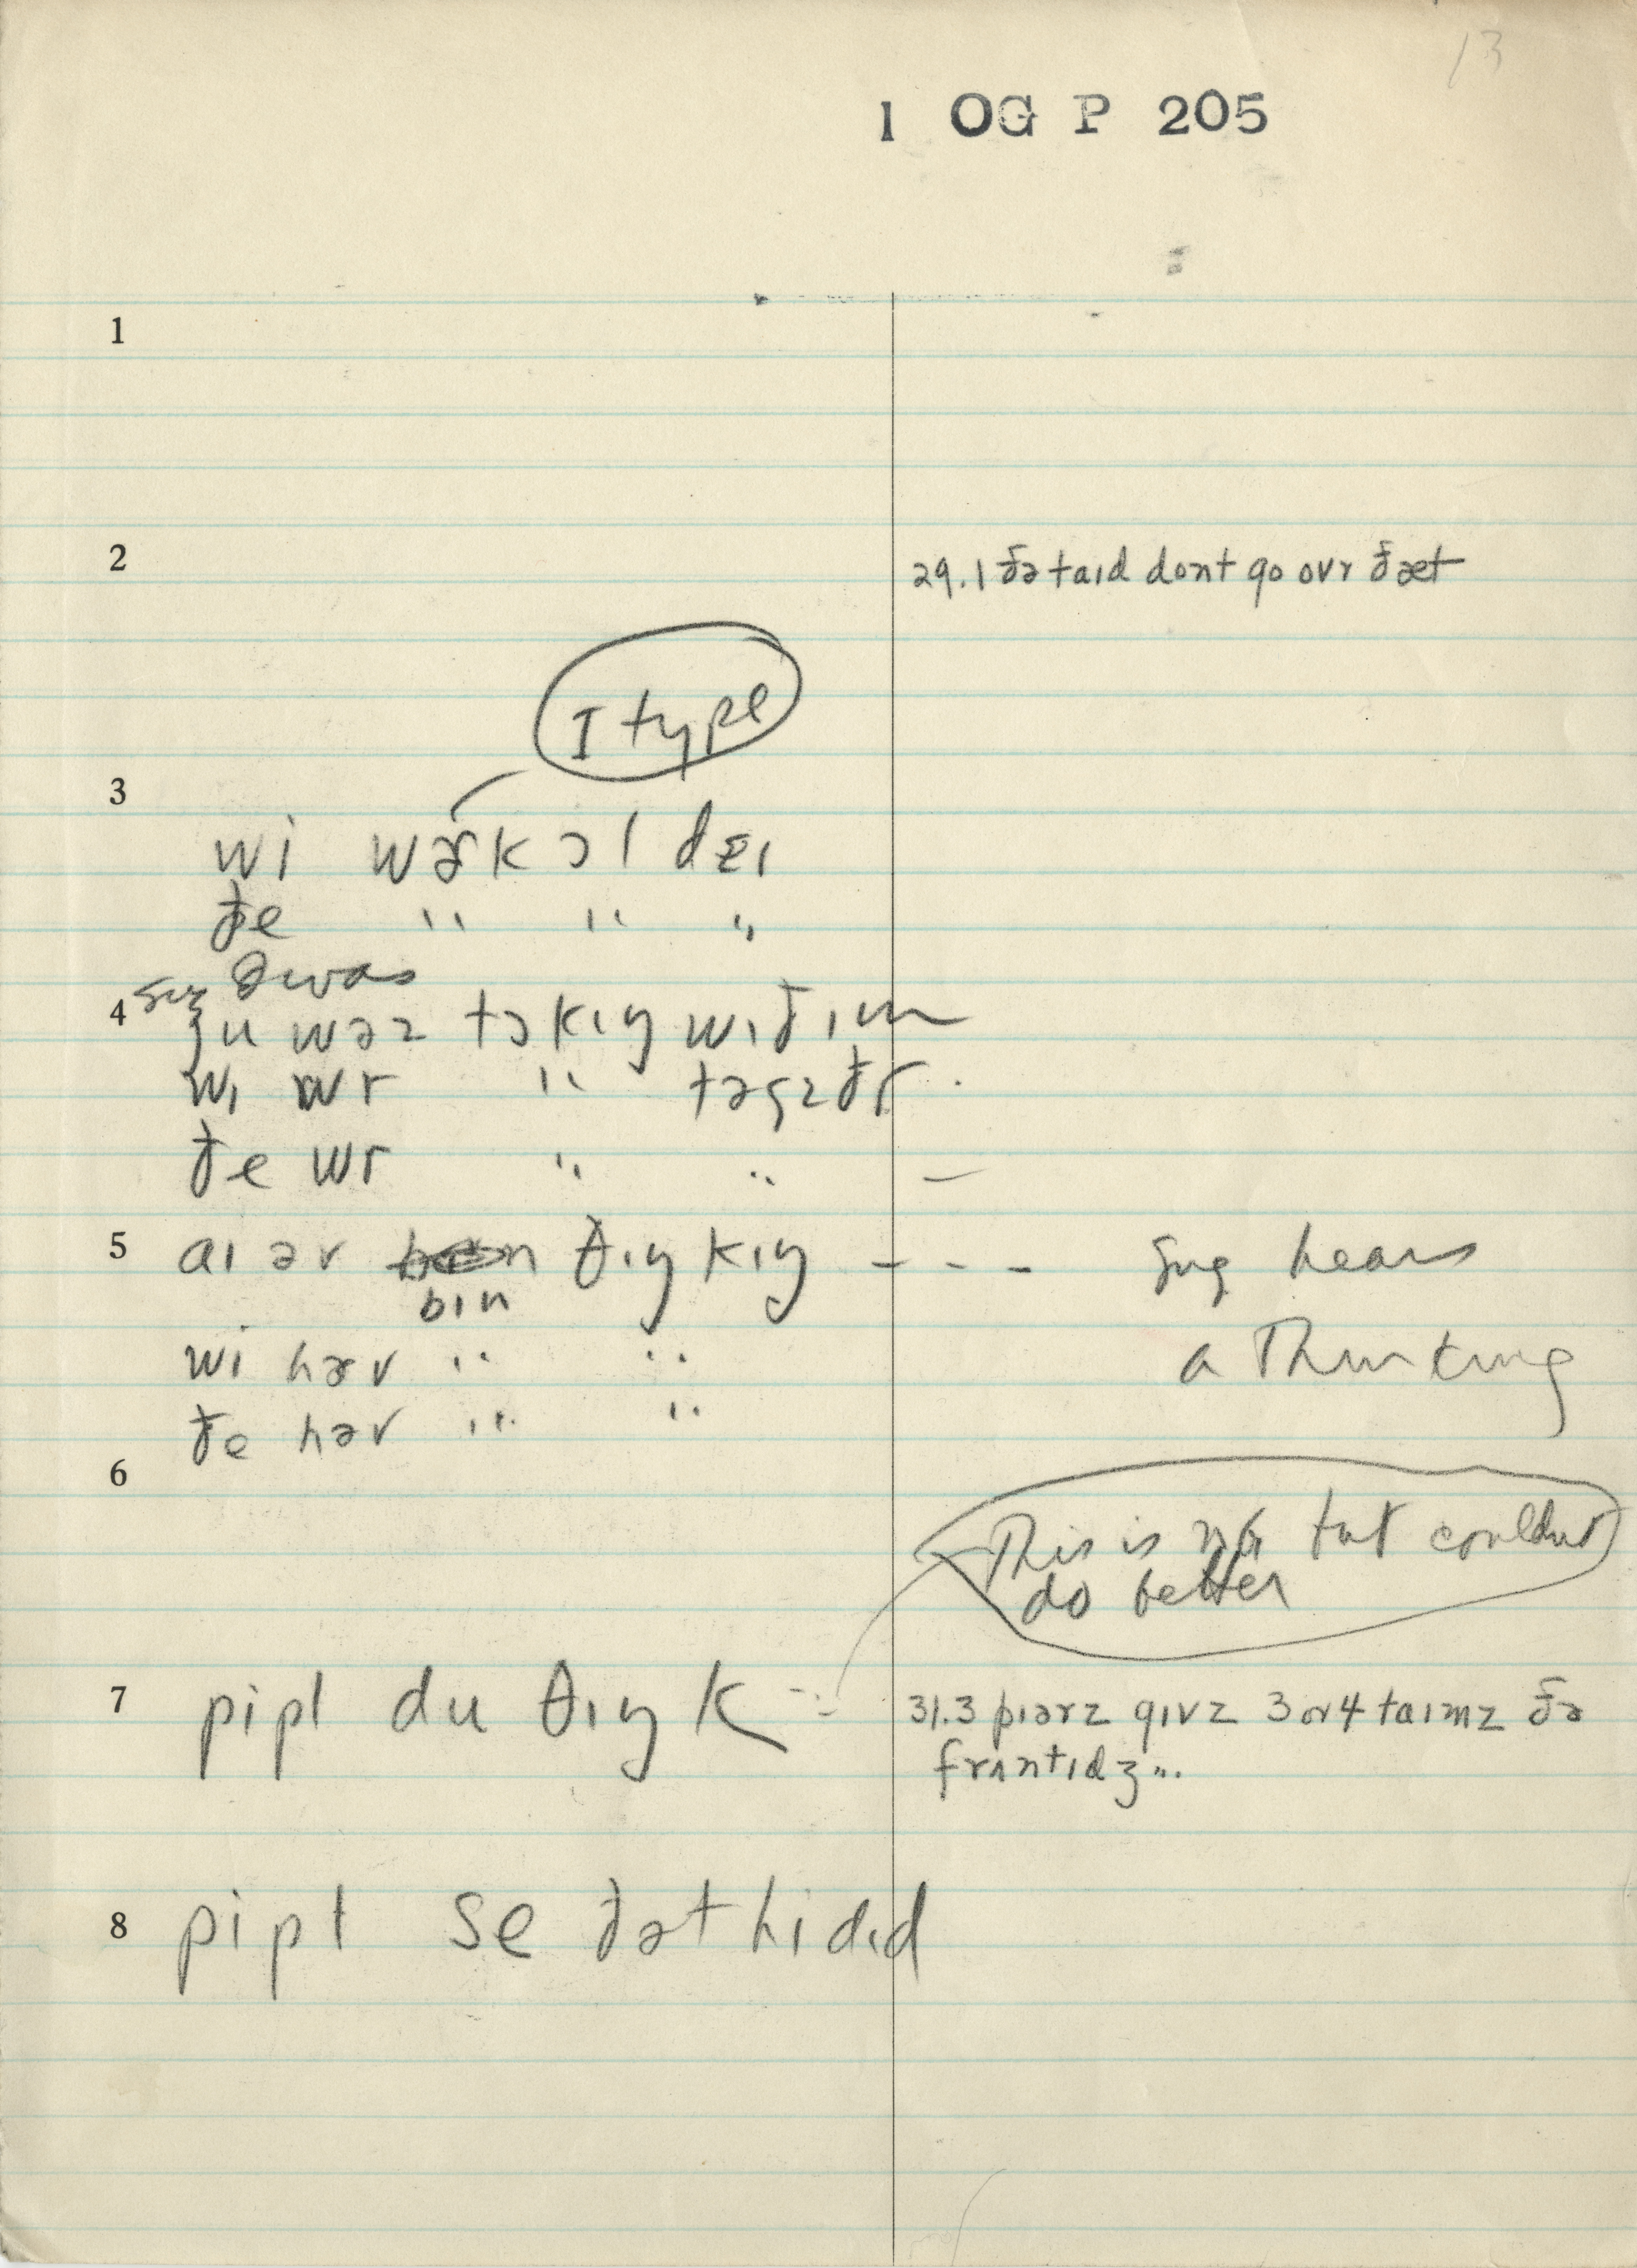 13
1 OG P 205
1
2
29.1 ðə taɪd dont go ovr ðæt
I type
3
wi wɚk ɔl deɪ
ðe " " "
sug was
4 ju wəz tɔkɪŋ wɪð ɪm
wɪ wr " təgɛðr.
ðe wr " " —
5 aɪ əv bɪn θɪŋkɪŋ - - - sug hears
a Thinking
wi həv " "
ðe həv " "
6
This is NG but couldnt
do better
7 pipl du θɪŋk 31.3 pɪərz gɪvz 3 or 4 taɪmz ðə
frʌntɪdʒ...
8 pipl se ðət hi dɪd